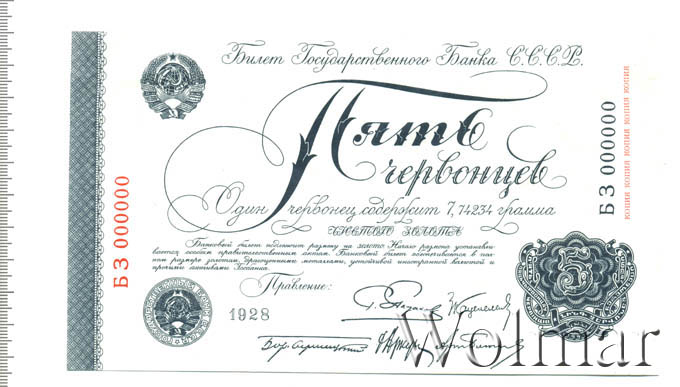 Билет Государственного Банка С.С.С.Р.
Пять
червонцев
Один червонец содержит 7,74234 грамма
чистого золота
Банковый билет подлежит размену на золото. Начало размена устанавли-
вается особым правительственным актом. Банковый билет обеспечивается в пол-
ном размере золотом, драгоценными металлами, устойчивой иностранной валютой и
прочими активами Госбанка.
Правление:
1928
БЗ 000000
БЗ 000000
КОПИЯ КОПИЯ КОПИЯ КОПИЯ КОПИЯ
5
Wolmar